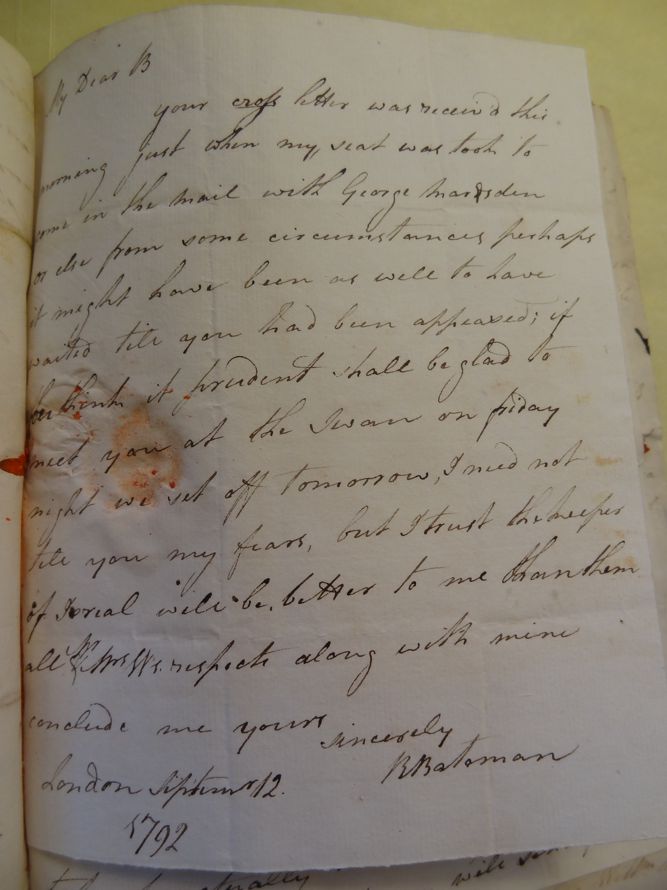 My Dear B
your cross letter was receiv'd this
morning just when my seat was took to
come in the mail with George Marsden
or else from some circumstances perhaps
it might have been as well to have
waited till you had been appeased; if
you think it prudent shall be glad to
meet you at the Swan on friday
night we set off tomorrow, I need not
tell you my fears, but I trust the keeper
of Isreal will be better to me than them
all Mr & Mrs Ws respects along with mine
conclude me yours
sincerely
London Septemr 12. RBateman
1792
will